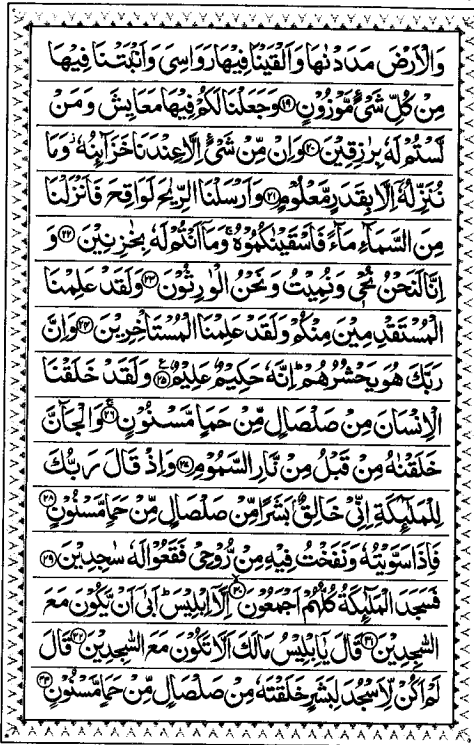 وَالْاَرْضَ مَدَدْنٰهَا وَاَلْقَيْنَا فِيْهَا رَوَاسِىَ وَاَنْۢبَتْنَا فِيْهَا
مِنْ كُلِّ شَىْءٍ مَّوْزُوْنٍ ۝۱۹ وَجَعَلْنَا لَكُمْ فِيْهَا مَعَايِشَ وَمَنْ
لَّسْتُمْ لَهٗ بِرٰزِقِيْنَ ۝۲۰ وَاِنْ مِّنْ شَىْءٍ اِلَّا عِنْدَنَا خَزَآئِنُهٗ وَمَا
نُنَزِّلُهٗۤ اِلَّا بِقَدَرٍ مَّعْلُوْمٍ ۝۲۱ وَاَرْسَلْنَا الرِّيٰحَ لَوَاقِحَ فَاَنْزَلْنَا
مِنَ السَّمَآءِ مَآءً فَاَسْقَيْنٰكُمُوْهُ وَمَاۤ اَنْتُمْ لَهٗ بِخٰزِنِيْنَ ۝۲۲ وَ
اِنَّا لَنَحْنُ نُحْىٖ وَنُمِيْتُ وَنَحْنُ الْوٰرِثُوْنَ ۝۲۳ وَلَقَدْ عَلِمْنَا
الْمُسْتَقْدِمِيْنَ مِنْكُمْ وَلَقَدْ عَلِمْنَا الْمُسْتَاْخِرِيْنَ ۝۲۴ وَاِنَّ
رَبَّكَ هُوَ يَحْشُرُهُمْ ؕ اِنَّهٗ حَكِيْمٌ عَلِيْمٌ ۝۲۵ وَلَقَدْ خَلَقْنَا
الْاِنْسَانَ مِنْ صَلْصَالٍ مِّنْ حَمَاٍ مَّسْنُوْنٍ ۝۲۶ وَالْجَآنَّ
خَلَقْنٰهُ مِنْ قَبْلُ مِنْ نَّارِ السَّمُوْمِ ۝۲۷ وَاِذْ قَالَ رَبُّكَ
لِلْمَلٰٓئِكَةِ اِنِّىْ خَالِقٌۢ بَشَرًا مِّنْ صَلْصَالٍ مِّنْ حَمَاٍ مَّسْنُوْنٍ ۝۲۸
فَاِذَا سَوَّيْتُهٗ وَنَفَخْتُ فِيْهِ مِنْ رُّوْحِىْ فَقَعُوْا لَهٗ سٰجِدِيْنَ ۝۲۹
فَسَجَدَ الْمَلٰٓئِكَةُ كُلُّهُمْ اَجْمَعُوْنَ ۝۳۰ اِلَّاۤ اِبْلِيْسَ ؕ اَبٰٓى اَنْ يَّكُوْنَ مَعَ
السّٰجِدِيْنَ ۝۳۱ قَالَ يٰۤاِبْلِيْسُ مَالَكَ اَلَّا تَكُوْنَ مَعَ السّٰجِدِيْنَ ۝۳۲ قَالَ
لَمْ اَكُنْ لِّاَسْجُدَ لِبَشَرٍ خَلَقْتَهٗ مِنْ صَلْصَالٍ مِّنْ حَمَاٍ مَّسْنُوْنٍ ۝۳۳